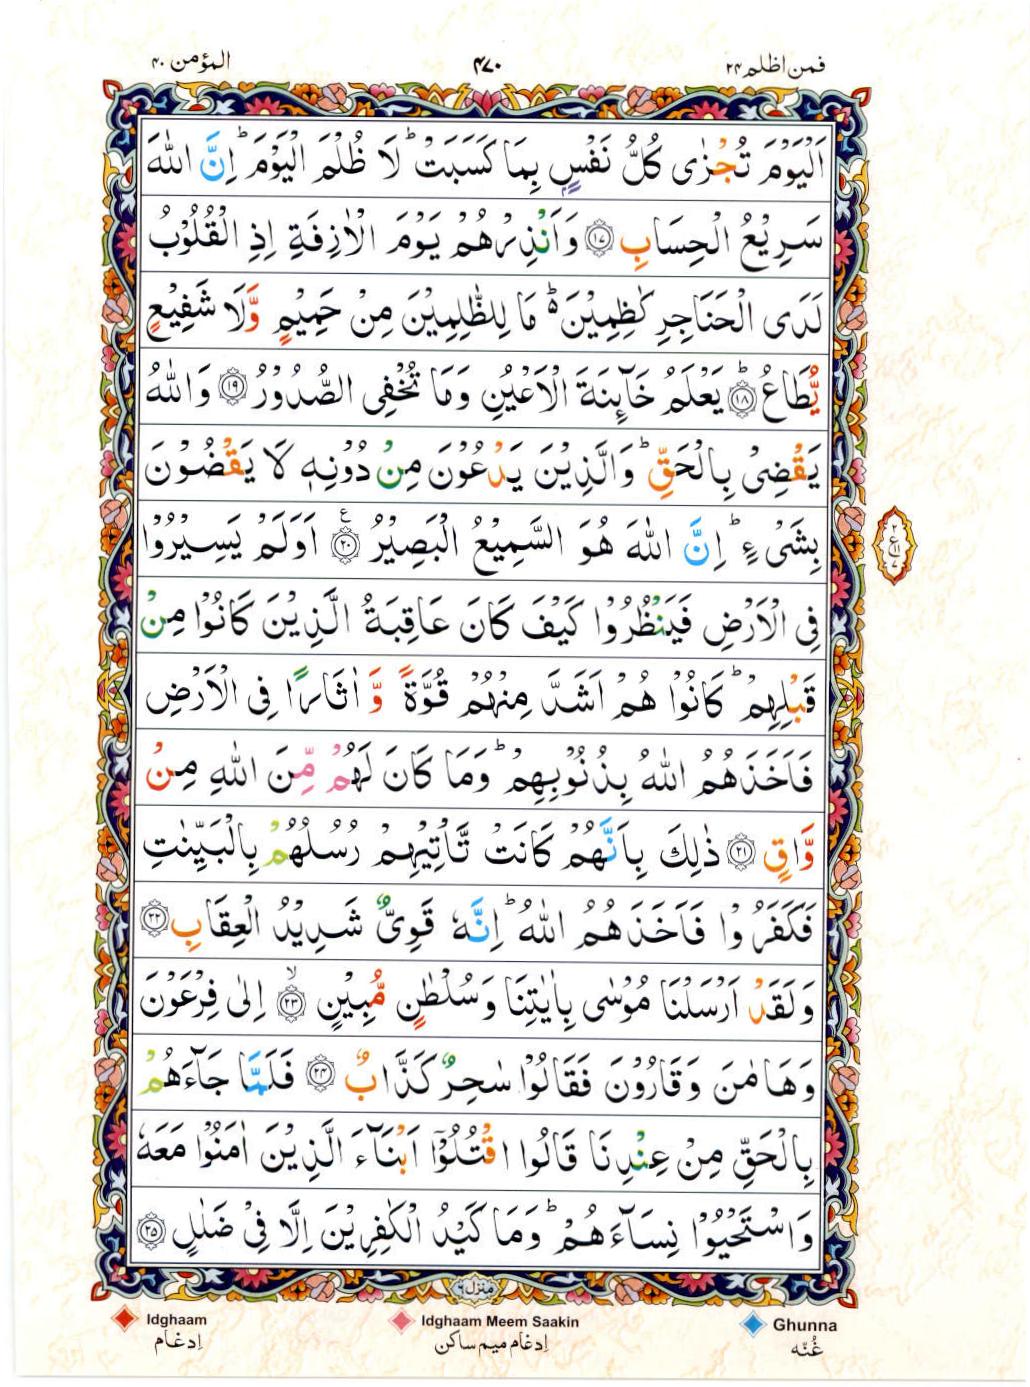 فمن اظلم ۲۴ ۴۷۰ المؤمن ۴۰
اَلْيَوْمَ تُجْزٰى كُلُّ نَفْسٍۭ بِمَا كَسَبَتْ ؕ لَا ظُلْمَ الْيَوْمَ ؕ اِنَّ اللّٰهَ
سَرِيْعُ الْحِسَابِ ﴿۱۷﴾ وَاَنْذِرْهُمْ يَوْمَ الْاٰزِفَةِ اِذِ الْقُلُوْبُ
لَدَى الْحَنَاجِرِ كٰظِمِيْنَ ؕ۬ مَا لِلظّٰلِمِيْنَ مِنْ حَمِيْمٍ وَّلَا شَفِيْعٍ
يُّطَاعُ ؕ﴿۱۸﴾ يَعْلَمُ خَآئِنَةَ الْاَعْيُنِ وَمَا تُخْفِى الصُّدُوْرُ ﴿۱۹﴾ وَاللّٰهُ
يَقْضِىْ بِالْحَقِّ ؕ وَالَّذِيْنَ يَدْعُوْنَ مِنْ دُوْنِهٖ لَا يَقْضُوْنَ
بِشَىْءٍ ؕ اِنَّ اللّٰهَ هُوَ السَّمِيْعُ الْبَصِيْرُ ﴿۲۰﴾ع اَوَلَمْ يَسِيْرُوْا
فِى الْاَرْضِ فَيَنْظُرُوْا كَيْفَ كَانَ عَاقِبَةُ الَّذِيْنَ كَانُوْا مِنْ
قَبْلِهِمْ ؕ كَانُوْا هُمْ اَشَدَّ مِنْهُمْ قُوَّةً وَّ اٰثَارًا فِى الْاَرْضِ
فَاَخَذَهُمُ اللّٰهُ بِذُنُوْبِهِمْ ؕ وَمَا كَانَ لَهُمْ مِّنَ اللّٰهِ مِنْ
وَّاقٍ ﴿۲۱﴾ ذٰلِكَ بِاَنَّهُمْ كَانَتْ تَّاْتِيْهِمْ رُسُلُهُمْ بِالْبَيِّنٰتِ
فَكَفَرُوْا فَاَخَذَهُمُ اللّٰهُ ؕ اِنَّهٗ قَوِىٌّ شَدِيْدُ الْعِقَابِ ﴿۲۲﴾
وَلَقَدْ اَرْسَلْنَا مُوْسٰى بِاٰيٰتِنَا وَسُلْطٰنٍ مُّبِيْنٍ ۙ﴿۲۳﴾ اِلٰى فِرْعَوْنَ
وَهَامٰنَ وَقَارُوْنَ فَقَالُوْا سٰحِرٌ كَذَّابٌ ﴿۲۴﴾ فَلَمَّا جَآءَهُمْ
بِالْحَقِّ مِنْ عِنْدِنَا قَالُوا اقْتُلُوْٓا اَبْنَآءَ الَّذِيْنَ اٰمَنُوْا مَعَهٗ
وَاسْتَحْيُوْا نِسَآءَهُمْ ؕ وَمَا كَيْدُ الْكٰفِرِيْنَ اِلَّا فِىْ ضَلٰلٍ ﴿۲۵﴾
منزل ۶
Idghaam Idghaam Meem Saakin Ghunna
اِدغَام اِدغَام میم ساکن غُنّه